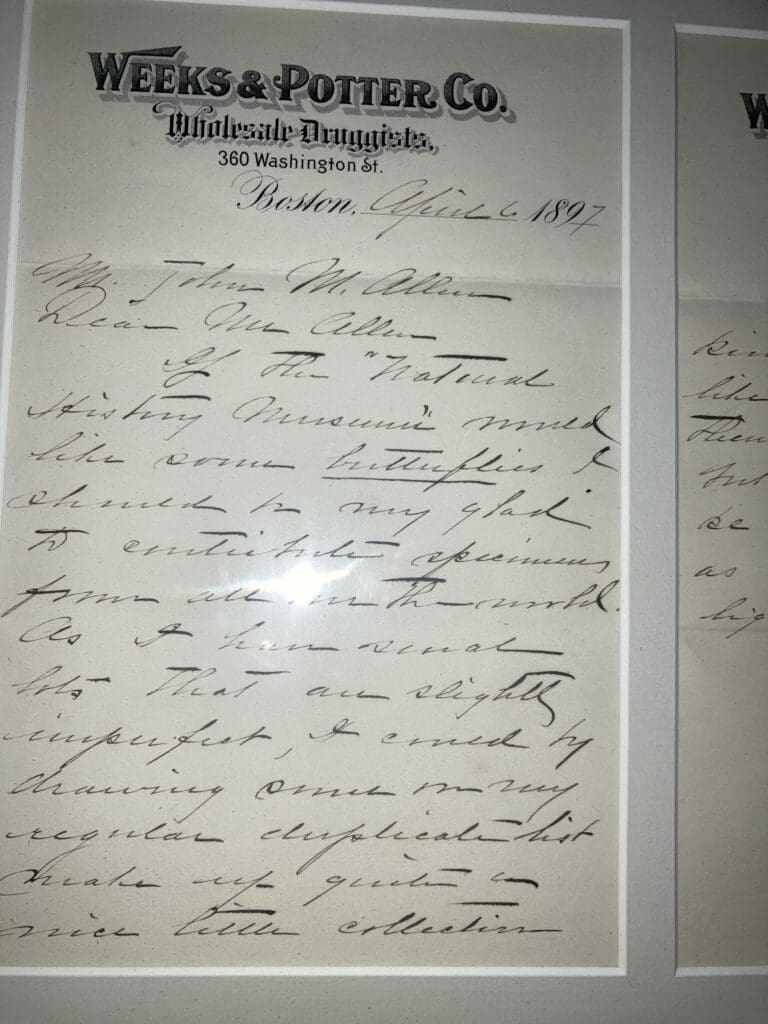 WEEKS & POTTER CO.
Wholesale Druggists,
360 Washington St.
Boston, April 6 1897
Mr. John M. Allen
Dear Mr Allen
If the "Natural
History Museum" would
like some butterflies I
should be very glad
to contribute specimens
from all over the world.
As I have several
lots that are slightly
imperfect, I could by
drawing some on my
regular duplicate list
make up quite a
nice little collection
W
kin
like
then
but
be
as
big